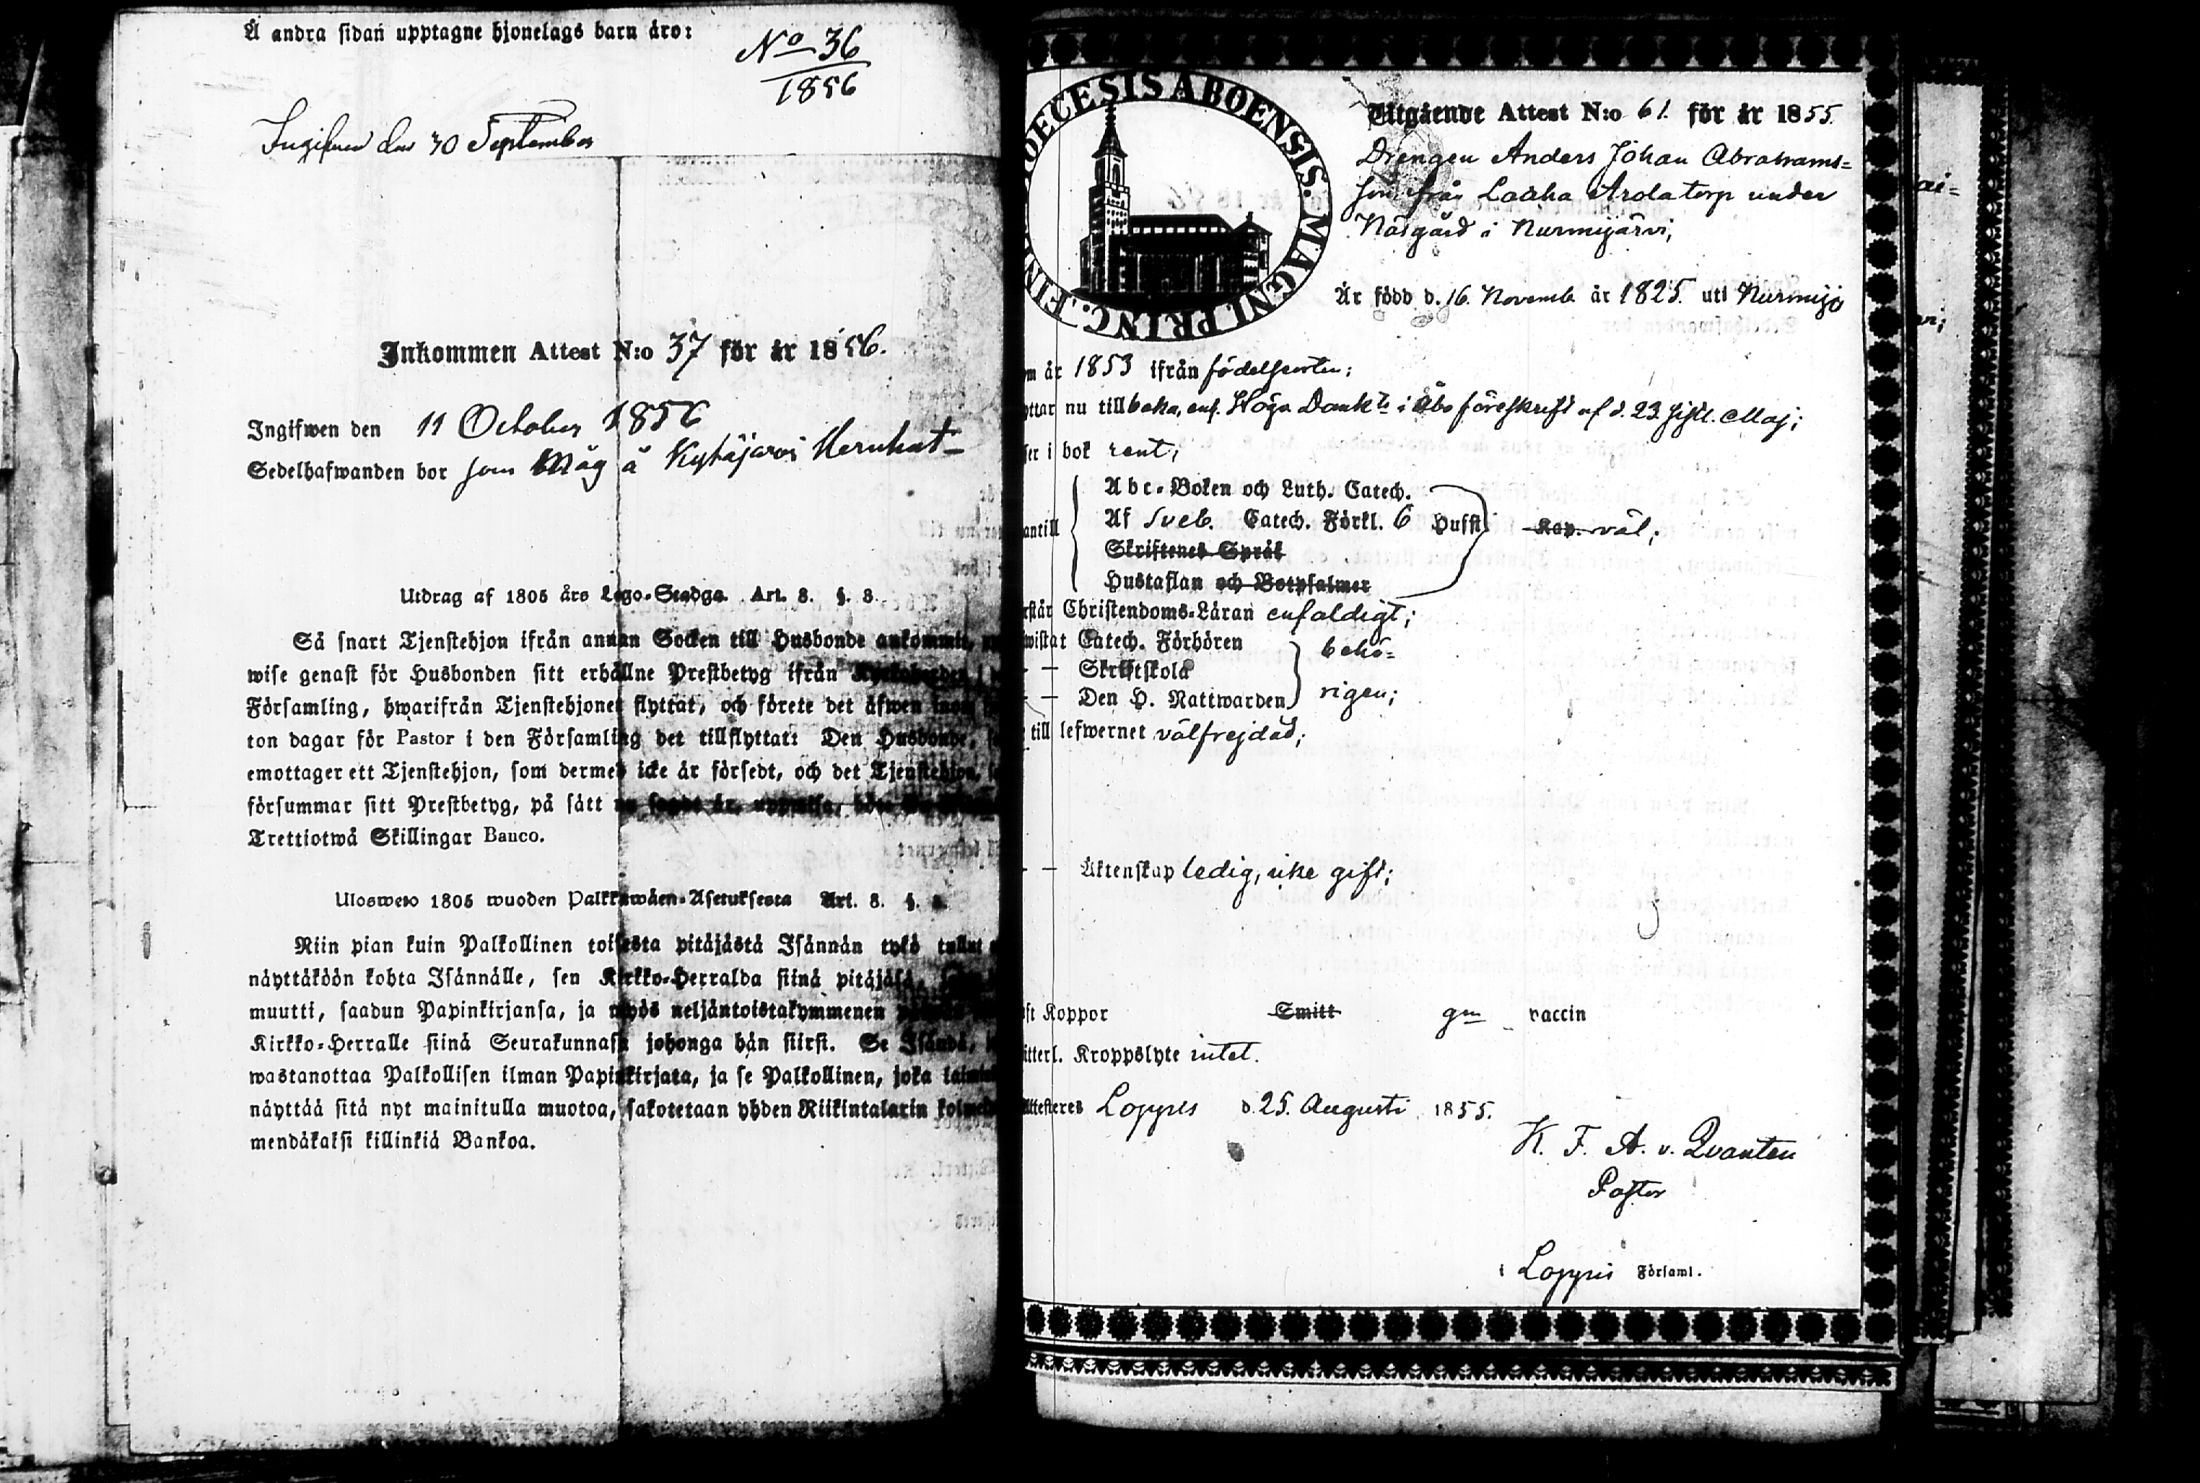 Å andra sidan upptagne hjonelags barn äro:
No 36
1856
Ingifven den 30 September
Inkommen Attest N:o 37 för år 1856.
Ingifwen den 11 October 1856
Sedelhafwanden bor som Måg å Kytäjärvi
Utdrag af 1805 års Lego-Stadga. Art. 8. §. 8.
Så snart Tjenstehjon ifrån annan Socken till Husbonde ankommit,
wise genast för Husbonden sitt erhållne Prestbetyg ifrån
Församling, hwarifrån Tjenstehjonet flyttat, och förete det äfwen inom
ton dagar för Pastor i den Församling det tillflyttat: Den Husbonde,
emottager ett Tjenstehjon, som dermed icke är försedt, och det Tjenstehjon,
försummar sitt Prestbetyg, på sätt nu sagdt är, uppwisa, böte
Trettiotwå Skillingar Banco.
Ulosweto 1805 wuoden Palkkawäen-Asetuksesta Art. 8. §. 8.
Niin pian kuin Palkollinen toisesta pitäjästä Isännän tykö tullut
näyttäköön kohta Isännälle, sen Kirkko-Herralda siinä pitäjäsä,
muutti, saadun Papinkirjansa, ja myös neljäntoistakymmenen
Kirkko-Herralle siinä Seurakunnasa johonga hän siirsi. Se Isändä,
wastanottaa Palkollisen ilman Papinkirjata, ja se Palkollinen, joka
näyttää sitä nyt mainitulla muotoa, sakotetaan yhden Riikintalarin
mendäkaksi killinkiä Bankoa.
DIOECESIS ABOENSIS. MAGNI PRINC. FINL
Utgående Attest N:o 61. för år 1855.
Drengen Anders Johan Abrahams-
son från Laaka Arola torp under
Näsgård i Nurmijärvi,
Är född d. 16. Novemb. år 1825. uti Nurmijo
om år 1853 ifrån födelseorten;
ttar nu tillbaka, enl. Höga Domk:ts i Åbo föreskrift af d. 23 sistl. Maj;
ser i bok rent;
antill
Abc-Boken och Luth. Catech.
Af Sveb. Catech. Förkl. 6 Hufst. Kap. väl;
Skriftenes Språk
Hustaflan och Botpsalmer
rstår Christendoms-Läran enfaldigt;
wistat Catech. Förhören behö-
— Skriftskola
— Den H. Nattwarden rigen;
till lefwernet välfrejdad;
— Äktenskap ledig, icke gift;
ft Koppor Smitt gm vaccin
itterl. Kroppslyte intet.
Attesteres Loppis d. 25. Augusti 1855.
K. F. A. v. Qvanten
Pastor
i Loppis Församl.